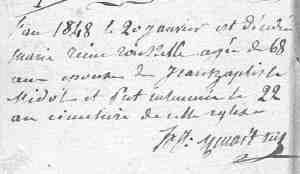 L'an 1848 le 20 janvier est décédée
marie reine âgée de 68
ans epouse de Jean baptiste
Midol et fut inhumée le 22
au cimetière de cette eglise